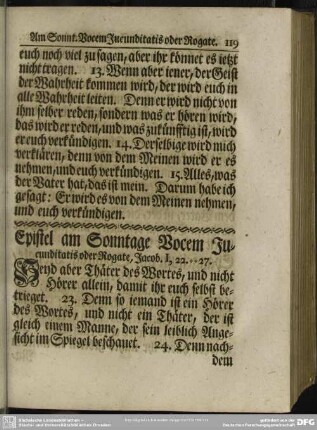 Am Sonnt. Vocem Jucunditatis oder Rogate. 119
euch noch viel zu sagen, aber ihr könnet es ietzt
nicht tragen. 13. Wenn aber iener, der Geist
der Wahrheit kommen wird, der wird euch in
alle Wahrheit leiten. Denn er wird nicht von
ihm selber reden, sondern was er hören wird,
das wird er reden, und was zukünfftig ist, wird
er euch verkündigen. 14. Derselbige wird mich
verklären, denn von dem Meinen wird er es
nehmen, und euch verkündigen. 15. Alles, was
der Vater hat, das ist mein. Darum habe ich
gesagt: Er wird es von dem Meinen nehmen,
und euch verkündigen.
Epistel am Sonntage Vocem Ju-
cunditatis oder Rogate, Jacob. I, 22. - 27.
Seyd aber Thäter des Wortes, und nicht
Hörer allein, damit ihr euch selbst be-
trieget. 23. Denn so iemand ist ein Hörer
des Wortes, und nicht ein Thäter, der ist
gleich einem Manne, der sein leiblich Ange-
sicht im Spiegel beschauet. 24. Denn nach-
dem
DFG